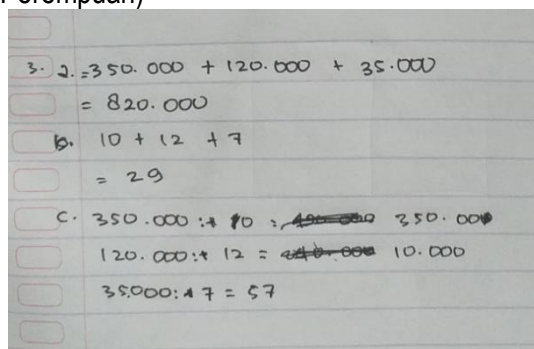 Perempuan)
3. a. =350.000 + 120.000 + 35.000
= 820.000
b. 10 + 12 + 7
= 29
c. 350.000 : 10 = 350.000
120.000 : 12 = 10.000
35.000 : 7 = 57